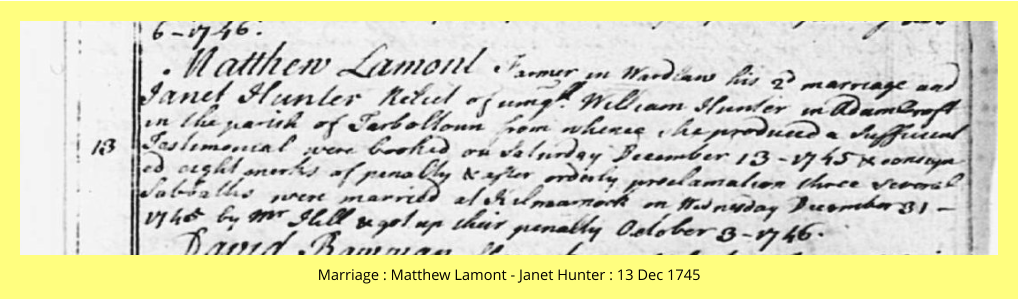 6-1746.
Matthew Lamont Farmer in Wardlaw his 2d marriage and
Janet Hunter Relict of umqll. William Hunter in Adamcroft
in the parish of Tarboltoun from whence she produced a Sufficient
13 Testimonial were booked on Saturday December 13-1745 & consign
ed eight merks of penalty & after orderly proclamation three several
Sabbaths were married at Kilmarnock on Wednesday December 31-
1745 by Mr Hill & got up their penalty October 3-1746.
David Bowman
Marriage : Matthew Lamont - Janet Hunter : 13 Dec 1745